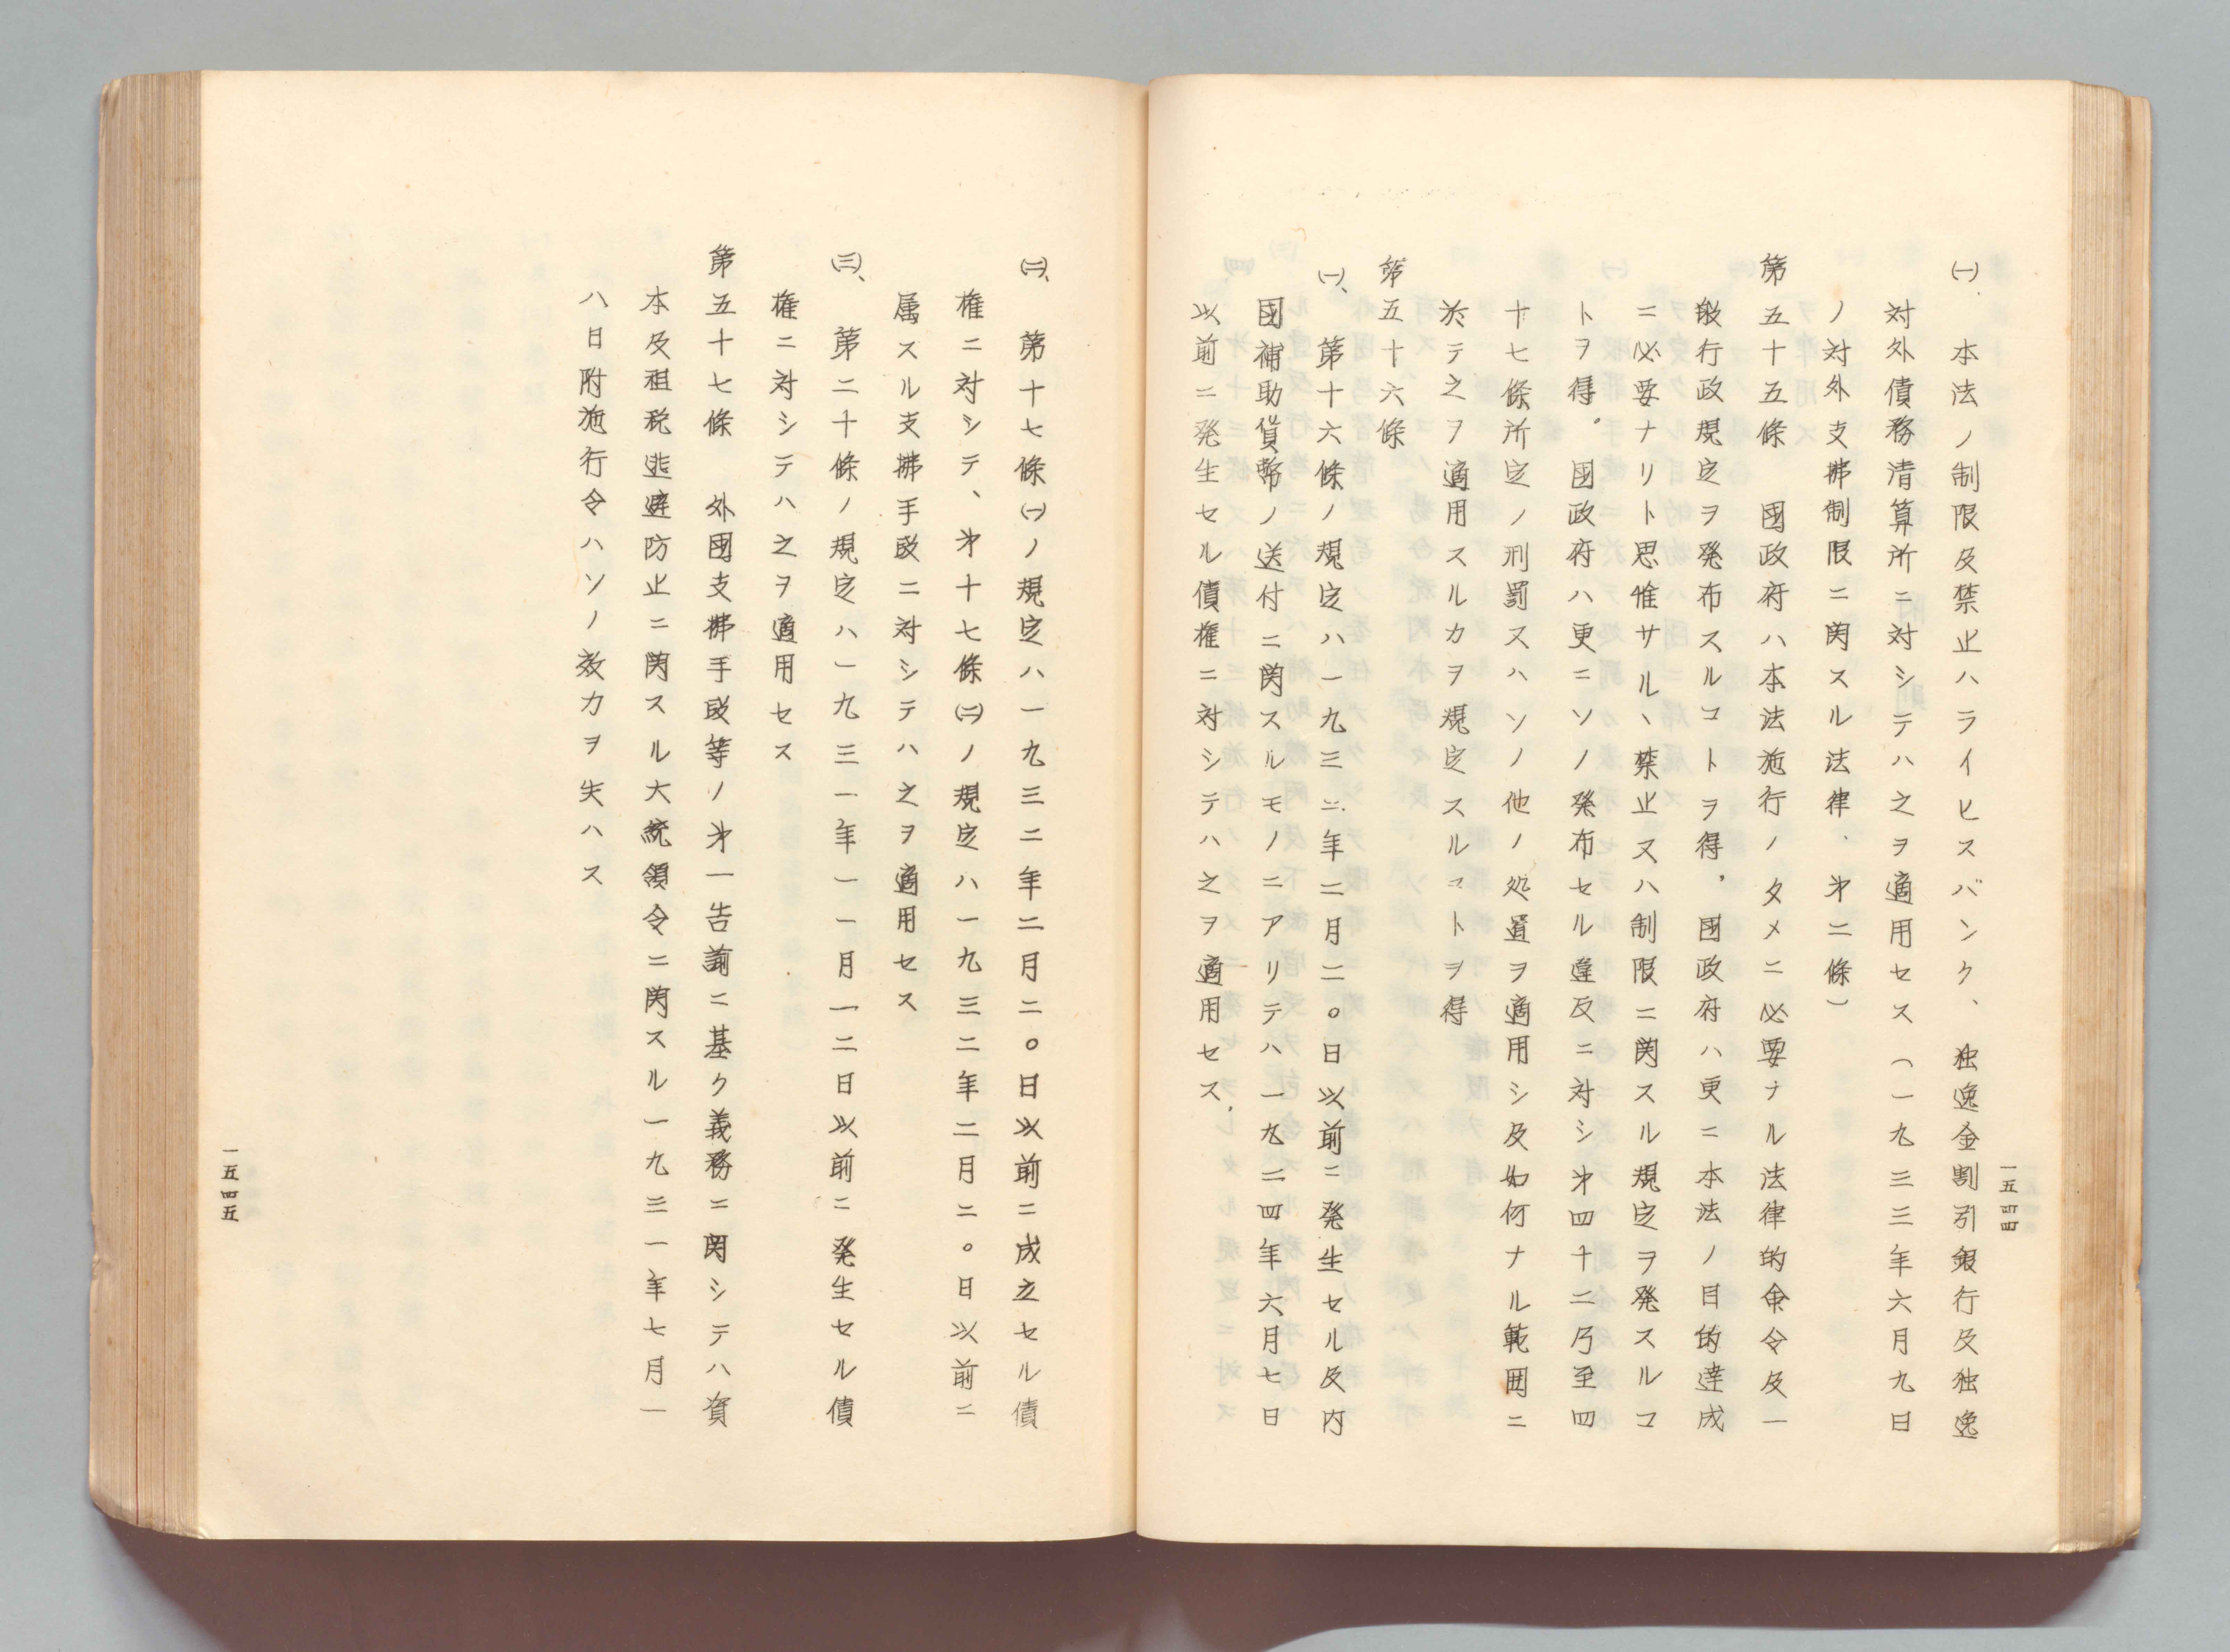 (一)、本法ノ制限及禁止ハライヒスバンク、独逸金割引銀行及独逸
対外債務清算所ニ対シテハ之ヲ適用セス(一九三三年六月九日
ノ対外支拂制限ニ関スル法律、才二條)
第五十五條　國政府ハ本法施行ノタメニ必要ナル法律的命令及一
般行政規定ヲ発布スルコトヲ得、國政府ハ更ニ本法ノ目的達成
ニ必要ナリト思惟サルヽ禁止又ハ制限ニ関スル規定ヲ発スルコ
トヲ得。國政府ハ更ニソノ発布セル違反ニ対シ才四十二乃至四
十七條所定ノ刑罰又ハソノ他ノ処置ヲ適用シ及如何ナル範囲ニ
於テ之ヲ適用スルカヲ規定スルコトヲ得
第五十六條
(一)、第十六條ノ規定ハ一九三二年二月二〇日以前ニ発生セル及内
國補助貨幣ノ送付ニ関スルモノニアリテハ一九三四年六月七日
以前ニ発生セル債権ニ対シテハ之ヲ適用セス、
一五四四
(二)、第十七條(一)ノ規定ハ一九三二年二月二〇日以前ニ成立セル債
権ニ対シテ、才十七條(二)ノ規定ハ一九三二年二月二〇日以前ニ
属スル支拂手段ニ対シテハ之ヲ適用セス
(三)、第二十條ノ規定ハ一九三一年一一月一二日以前ニ発生セル債
権ニ対シテハ之ヲ適用セス
第五十七條　外國支拂手段等ノ才一告諭ニ基ク義務ニ関シテハ資
本及租税逃避防止ニ関スル大統領令ニ関スル一九三一年七月一
八日附施行令ハソノ效力ヲ失ハス
一五四五